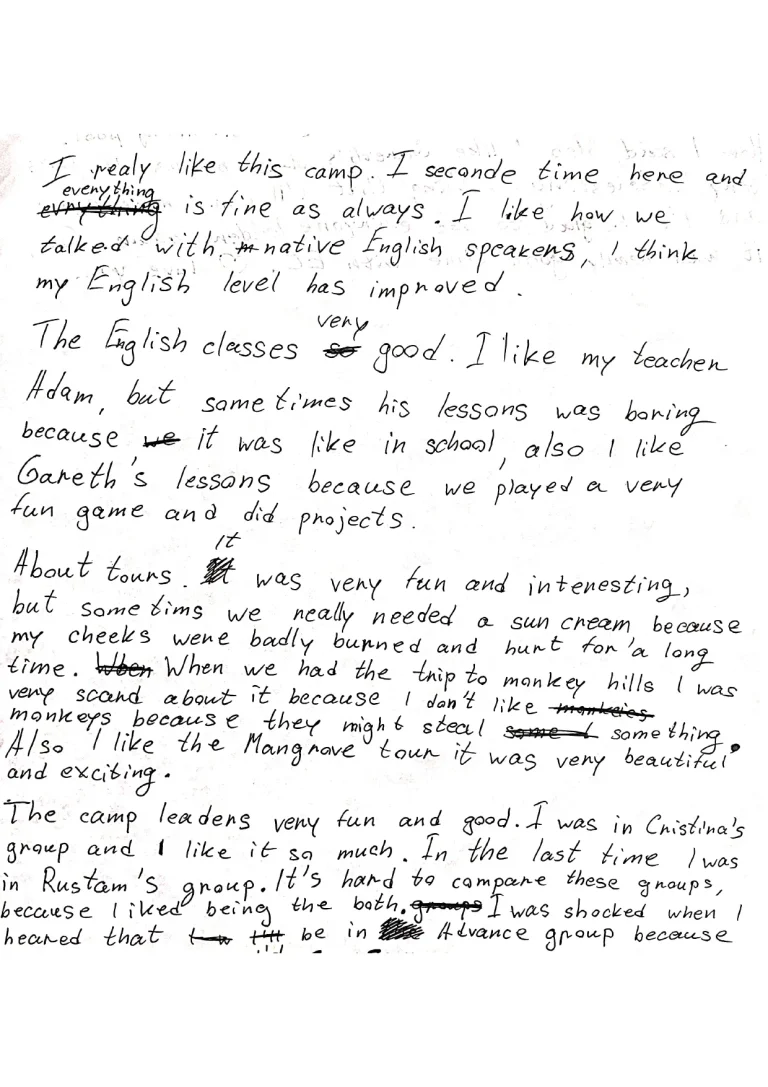 I realy like this camp. I seconde time here and
everything
is fine as always. I like how we
talked with native English speakers, I think
my English level has improved.
The English classes very good. I like my teacher
Adam, but sometimes his lessons was boring
because it was like in school, also I like
Gareth's lessons because we played a very
fun game and did projects.
About tours. It was very fun and interesting,
but some tims we really needed a sun cream because
my cheeks were badly burned and hurt for a long
time. When we had the trip to monkey hills I was
very scard about it because I don't like
monkeys because they might steal something.
Also I like the Mangrove tour it was very beautiful
and exciting.
The camp leaders very fun and good. I was in Cristina's
group and I like it so much. In the last time I was
in Rustam's group. It's hard to compare these groups,
because I liked being the both. I was shocked when I
heared that be in Advance group because